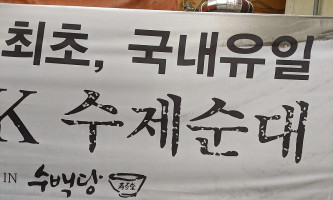 최초, 국내유일
K 수제순대
IN 수백당